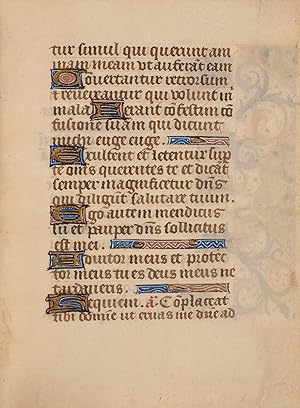 tur simul qui querunt ani
mam meam ut auferāt eam
Conuertantur retrorsum
et reuereantur qui uolunt in
mala. Ferant cōfestim cō
fusionem suam qui dicunt
michi euge euge.
Exultent et letentur sup
te om̄s querentes te et dicāt
semper magnificetur dn̄s
qui diligunt salutare tuum.
Ego autem mendicus
sū et pauper dn̄s sollicitus
est mei.
Adiutor meus et protec
tor meus tu es deus meus ne
tardaueris.
Requiem. a. Cōplaceat
tibi domīe ut eruas me dn̄e ad